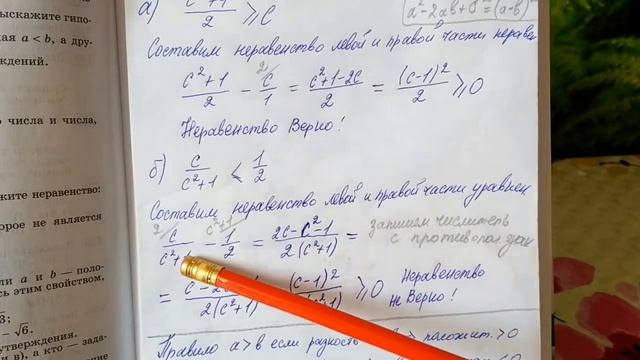 ыскажите гипо-
ная a < b, а дру-
ждений.
о числа и числа,
жите неравенство:
орое не является
ли a и b — поло-
сь этим свойством,
√3;
– √6.
утверждения.
и в), а кто — зада-
а) (c²+1)/2 ⩾ c
a²-2ab+b²=(a-b)²
Составим неравенство левой и правой части нерав
(c²+1)/2 - c/1 = (c²+1-2c)/2 = (c-1)²/2 ⩾ 0
Неравенство Верно!
б) c/(c²+1) ⩽ 1/2
Составим неравенство левой и правой части уравнен
c/(c²+1) - 1/2 = (2c-c²-1)/(2(c²+1)) = запишем числитель
с противопол знак
(c-1)² ⩾ 0 Неравенство
не Верно!
Правило a>b если разность положит. >0